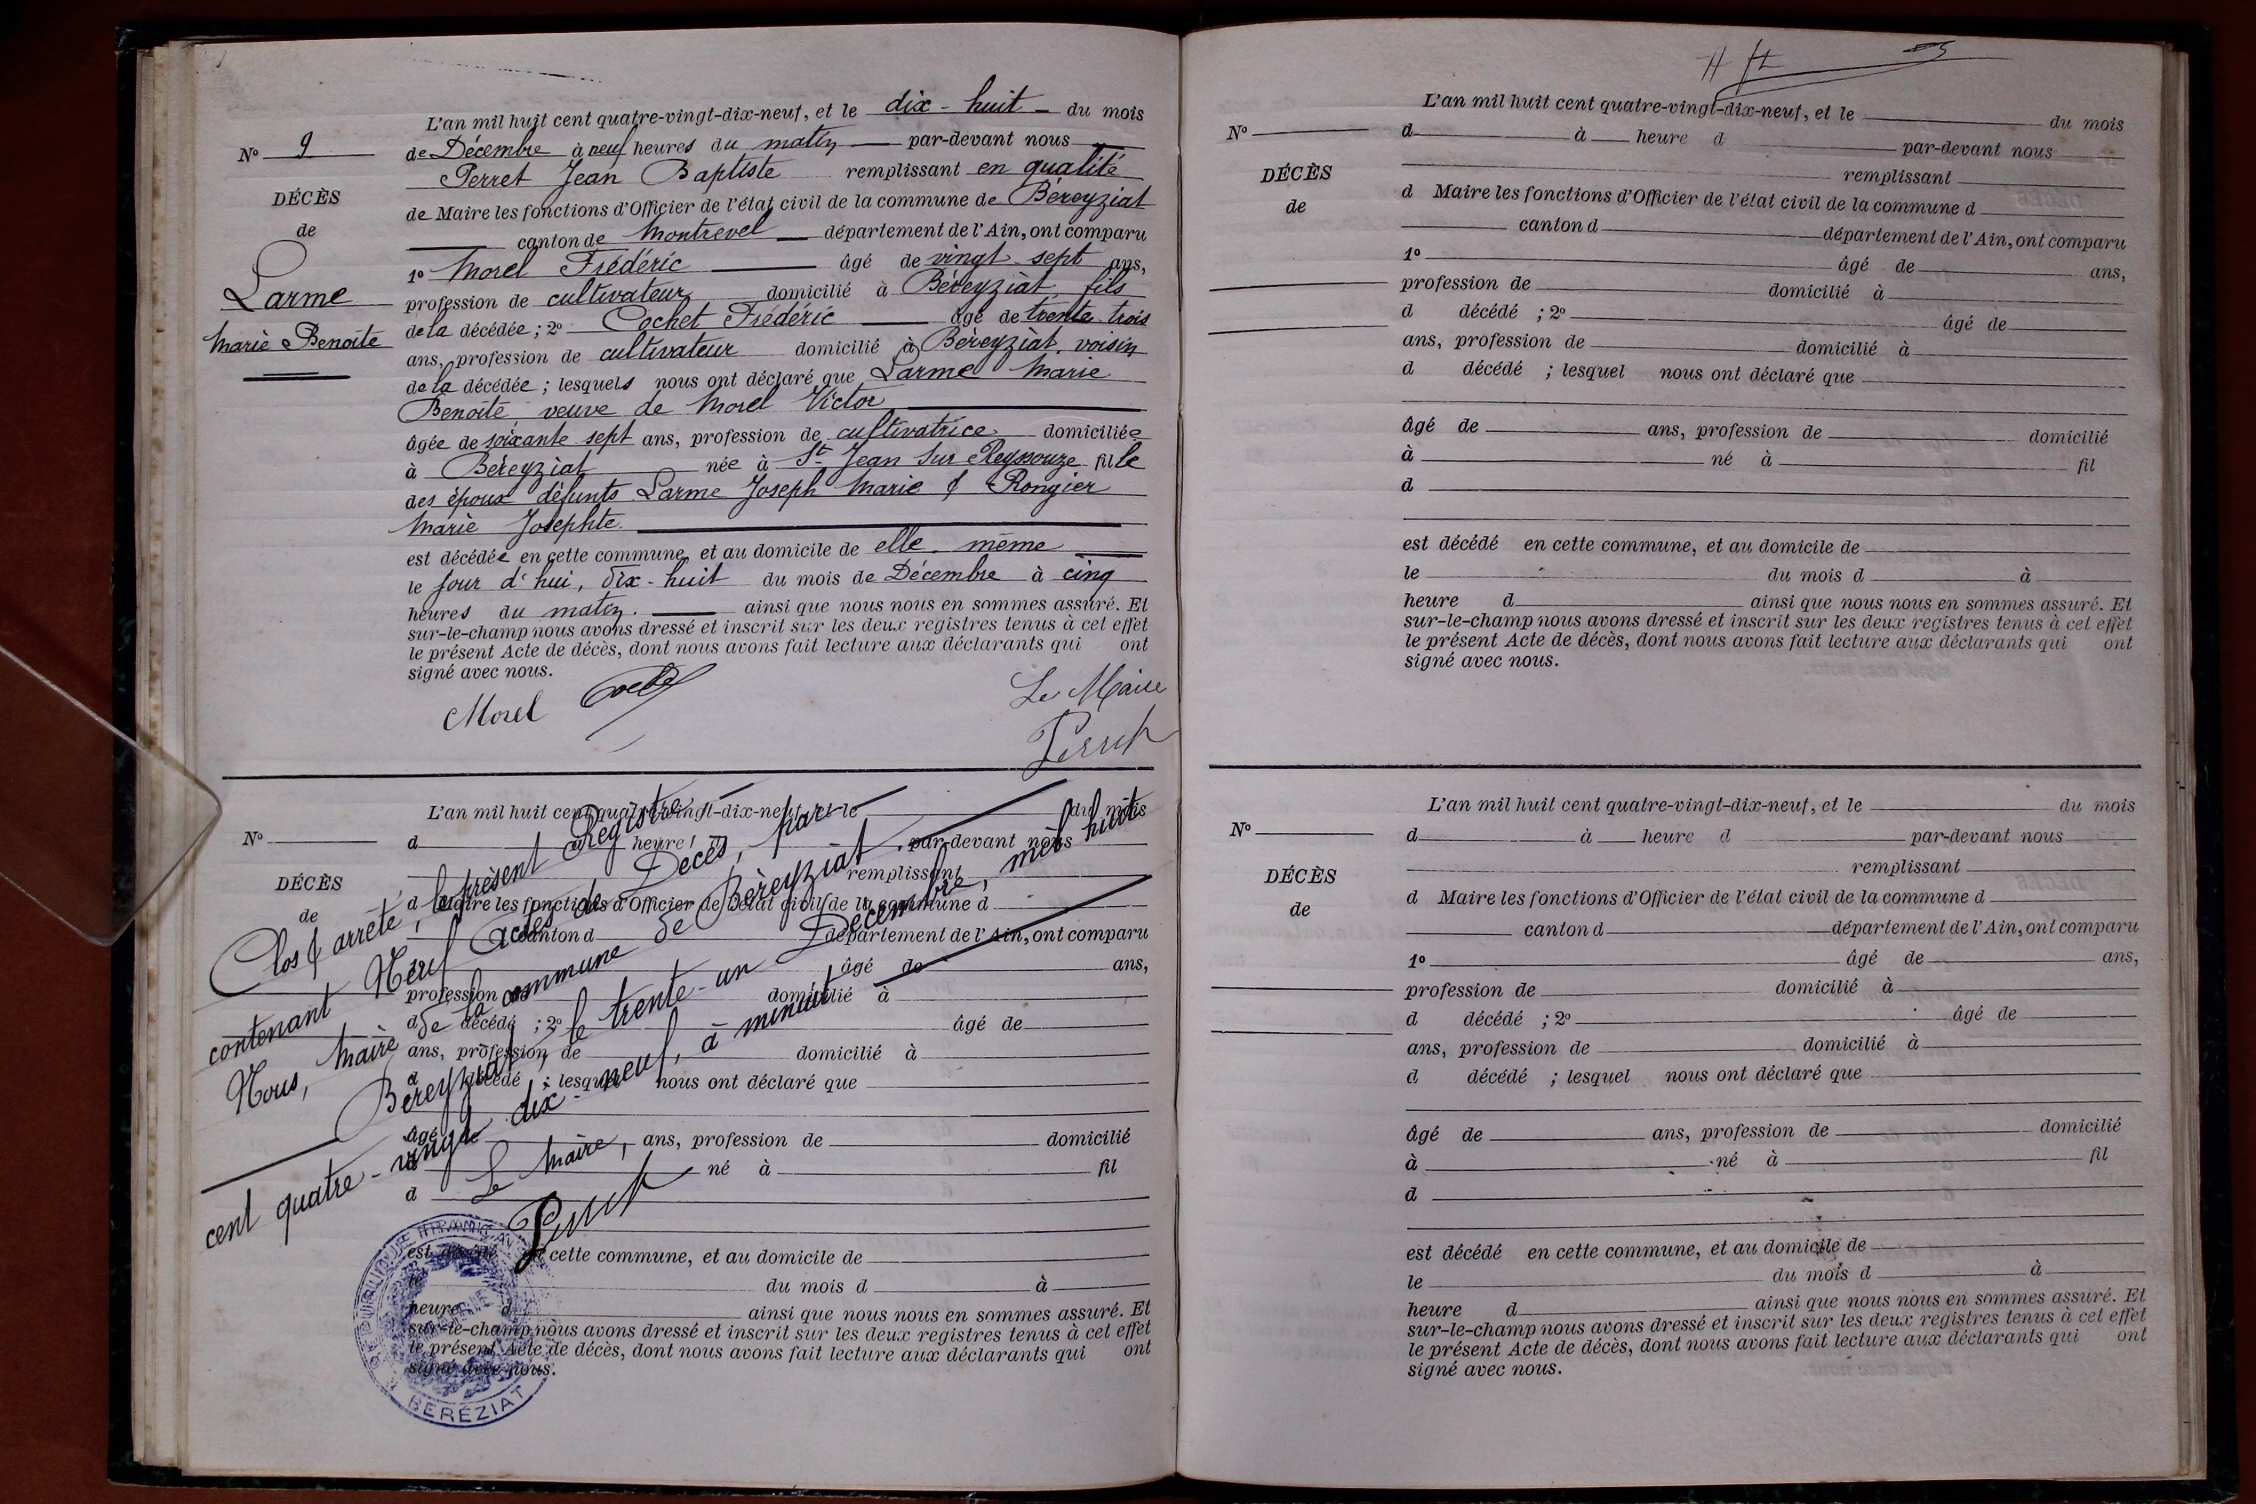 L'an mil huit cent quatre-vingt-dix-neuf, et le dix-huit du mois
de Décembre à neuf heures du matin par-devant nous
Perret Jean Baptiste remplissant en qualité
de Maire les fonctions d'Officier de l'état civil de la commune de Béreyziat
canton de Montrevel département de l'Ain, ont comparu
1º Morel Frédéric âgé de vingt sept ans,
profession de cultivateur domicilié à Béreyziat fils
de la décédée ; 2º Cochet Frédéric âgé de trente trois
ans, profession de cultivateur domicilié à Béreyziat, voisin
de la décédée ; lesquels nous ont déclaré que Larme Marie
Benoîte veuve de Morel Victor
âgée de soixante sept ans, profession de cultivatrice domiciliée
à Béreyziat née à St Jean sur Reyssouze fille
des époux défunts Larme Joseph Marie & Rongier
Marie Josephte.
est décédée en cette commune, et au domicile de elle-même
le jour d'hui, dix-huit du mois de Décembre à cinq
heures du matin. ainsi que nous nous en sommes assuré. Et
sur-le-champ nous avons dressé et inscrit sur les deux registres tenus à cet effet
le présent Acte de décès, dont nous avons fait lecture aux déclarants qui ont
signé avec nous.
Nº 9
DÉCÈS
de
Larme
Marie Benoîte
Morel
Le Maire
Perret
L'an mil huit cent quatre-vingt-dix-neuf, et le du mois
d heure d par-devant nous
remplissant
d Maire les fonctions d'Officier de l'état civil de la commune d
canton d département de l'Ain, ont comparu
âgé de ans,
profession de domicilié à
d décédé ; 2º âgé de
ans, profession de domicilié à
d décédé ; lesquel nous ont déclaré que
âgé ans, profession de domicilié
né à fil
d
est décédé en cette commune, et au domicile de
le du mois d à
heure d ainsi que nous nous en sommes assuré. Et
sur-le-champ nous avons dressé et inscrit sur les deux registres tenus à cet effet
le présent Acte de décès, dont nous avons fait lecture aux déclarants qui ont
signé avec nous.
Nº
DÉCÈS
de
Clos & arrêté, le présent Registre
contenant Neuf actes de Décès, par
Nous, Maire de la commune de Béreyziat.
Béreyziat, le trente-un Décembre, mil huit
cent quatre-vingt dix-neuf, à minuit
Le Maire,
Perret
RÉPUBLIQUE FRANÇAISE
BERÉZIAT
L'an mil huit cent quatre-vingt-dix-neuf, et le du mois
d à heure d par-devant nous
remplissant
d Maire les fonctions d'Officier de l'état civil de la commune d
canton d département de l'Ain, ont comparu
1º âgé de ans,
profession de domicilié à
d décédé ; 2º âgé de
ans, profession de domicilié à
d décédé ; lesquel nous ont déclaré que
âgé de ans, profession de domicilié
à né à fil
d
est décédé en cette commune, et au domicile de
le du mois d à
heure d ainsi que nous nous en sommes assuré. Et
sur-le-champ nous avons dressé et inscrit sur les deux registres tenus à cet effet
le présent Acte de décès, dont nous avons fait lecture aux déclarants qui ont
signé avec nous.
Nº
DÉCÈS
de
L'an mil huit cent quatre-vingt-dix-neuf, et le du mois
d à heure d par-devant nous
remplissant
d Maire les fonctions d'Officier de l'état civil de la commune d
canton d département de l'Ain, ont comparu
1º âgé de ans,
profession de domicilié à
d décédé ; 2º âgé de
ans, profession de domicilié à
d décédé ; lesquel nous ont déclaré que
âgé de ans, profession de domicilié
à né à fil
d
est décédé en cette commune, et au domicile de
le du mois d à
heure d ainsi que nous nous en sommes assuré. Et
sur-le-champ nous avons dressé et inscrit sur les deux registres tenus à cet effet
le présent Acte de décès, dont nous avons fait lecture aux déclarants qui ont
signé avec nous.
Nº
DÉCÈS
de